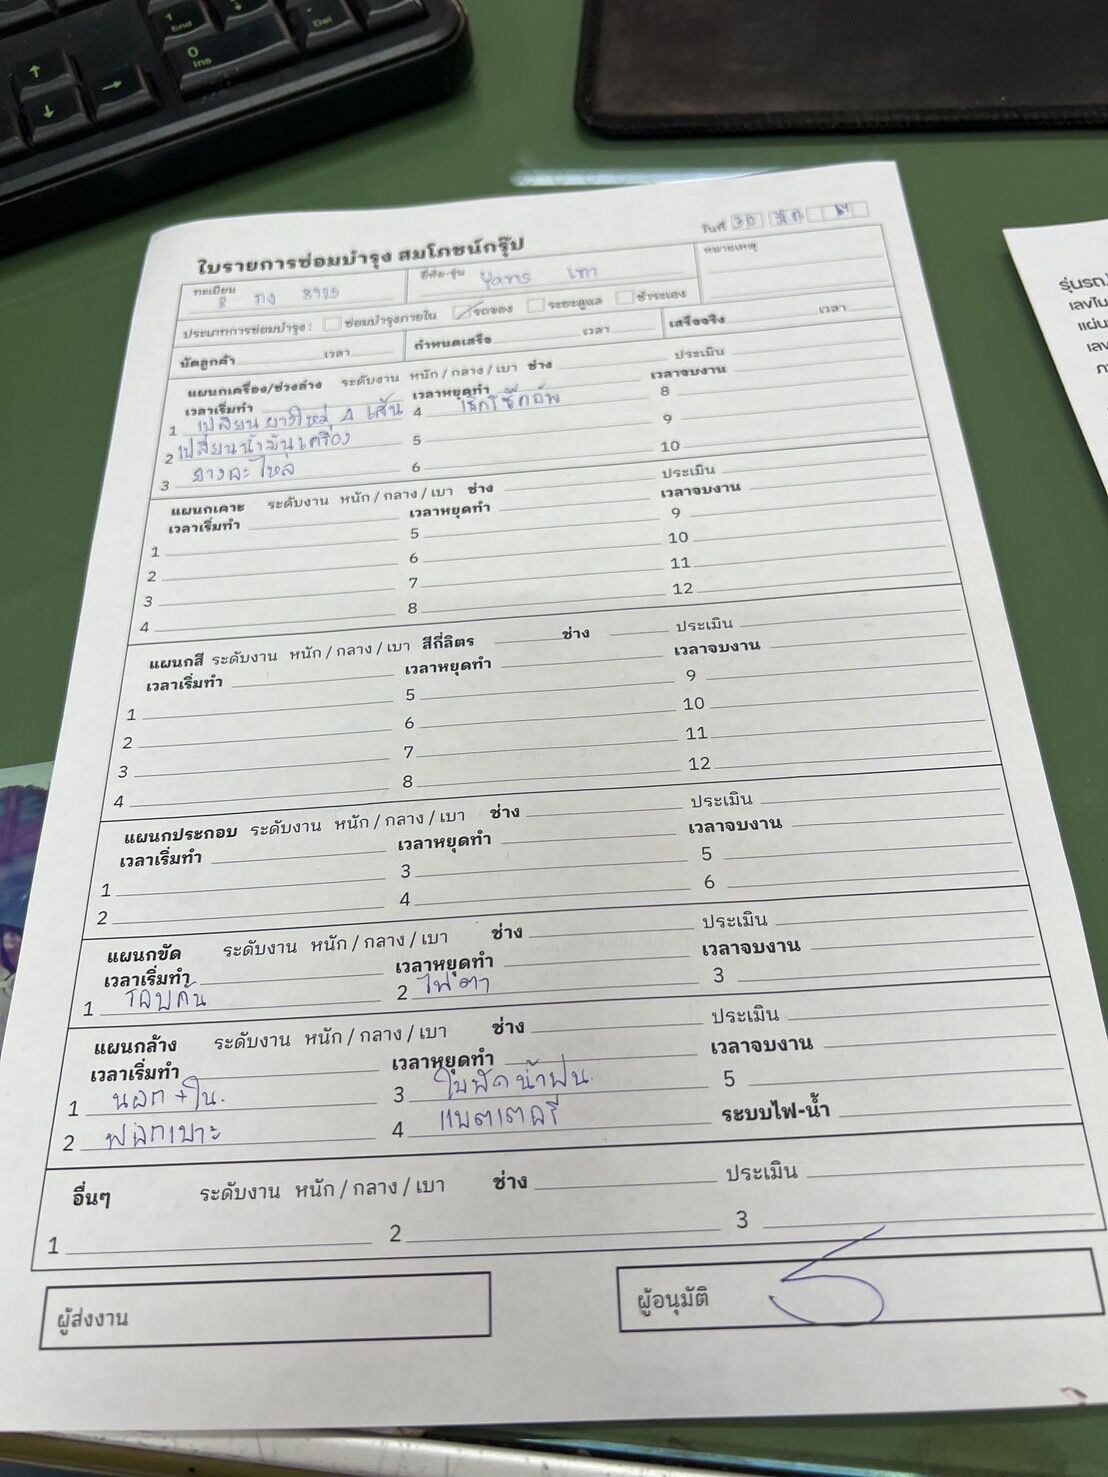 1 End
Del
0 Ins
ใบรายการซ่อมบำรุง สมโภชนักรุ๊ป
วันที่ 30
ทะเบียน 8 กง 8975
ยี่ห้อ-รุ่น Yaris เทา
หมายเหตุ
ประเภทการซ่อมบำรุง : ซ่อมบำรุงภายใน รถจอง ระยะดูแล ชำระเอง
นัดลูกค้า เวลา กำหนดเสร็จ เวลา เสร็จจริง เวลา
แผนกเครื่อง/ช่วงล่าง ระดับงาน หนัก / กลาง / เบา ช่าง ประเมิน
เวลาเริ่มทำ เวลาหยุดทำ เวลาจบงาน
1 เปลี่ยนยางใหม่ 4 เส้น 4 เช็กโช๊คอัพ 8
2 เปลี่ยนน้ำมันเครื่อง 5 9
3 ยางอะไหล่ 6 10
แผนกเคาะ ระดับงาน หนัก / กลาง / เบา ช่าง ประเมิน
เวลาเริ่มทำ เวลาหยุดทำ เวลาจบงาน
1 5 9
2 6 10
3 7 11
4 8 12
แผนกสี ระดับงาน หนัก / กลาง / เบา สีกี่ลิตร ช่าง ประเมิน
เวลาเริ่มทำ เวลาหยุดทำ เวลาจบงาน
1 5 9
2 6 10
3 7 11
4 8 12
แผนกประกอบ ระดับงาน หนัก / กลาง / เบา ช่าง ประเมิน
เวลาเริ่มทำ เวลาหยุดทำ เวลาจบงาน
1 3 5
2 4 6
แผนกขัด ระดับงาน หนัก / กลาง / เบา ช่าง ประเมิน
เวลาเริ่มทำ เวลาหยุดทำ เวลาจบงาน
1 รอบคัน 2 ไฟตา 3
แผนกล้าง ระดับงาน หนัก / กลาง / เบา ช่าง ประเมิน
เวลาเริ่มทำ เวลาหยุดทำ เวลาจบงาน
1 นอก + ใน. 3 ใบปัดน้ำฝน. 5
2 ฟอกเบาะ 4 แบตเตอรี่ ระบบไฟ-น้ำ
อื่นๆ ระดับงาน หนัก / กลาง / เบา ช่าง ประเมิน
1 2 3
ผู้ส่งงาน ผู้อนุมัติ
รุ่นรถ